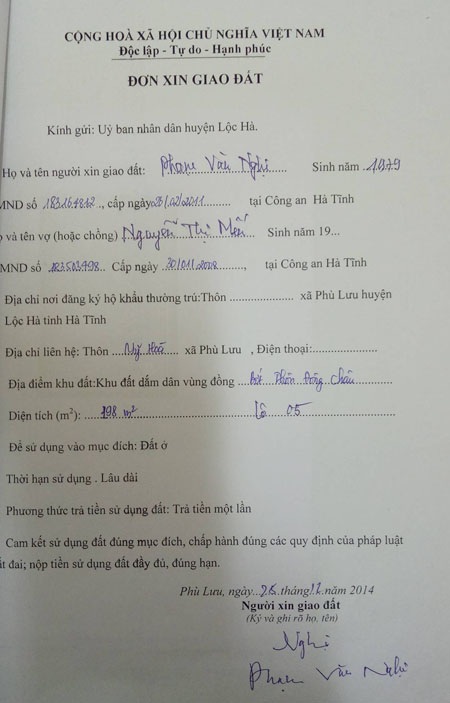 CỘNG HOÀ XÃ HỘI CHỦ NGHĨA VIỆT NAM
Độc lập - Tự do - Hạnh phúc
ĐƠN XIN GIAO ĐẤT
Kính gửi: Uỷ ban nhân dân huyện Lộc Hà.
Họ và tên người xin giao đất: Phạm Văn Nghị Sinh năm .1979
MND số .183164812.., cấp ngày 25/02/2011......... tại Công an Hà Tĩnh
ọ và tên vợ (hoặc chồng) Nguyễn Thị Mến... Sinh năm 19...
MND số .183503498.. Cấp ngày .20/01/2008........., tại Công an Hà Tĩnh
Địa chỉ nơi đăng ký hộ khẩu thường trú:Thôn .................. xã Phù Lưu huyện
Lộc Hà tỉnh Hà Tĩnh
Địa chỉ liên hệ: Thôn ....Mỹ Hoà.... xã Phù Lưu , Điện thoại:..................
Địa điểm khu đất:Khu đất dắm dân vùng đồng ... Đồng Chân..........
Diện tích (m²): ....198 m² Lô 05
Để sử dụng vào mục đích: Đất ở
Thời hạn sử dụng . Lâu dài
Phương thức trả tiền sử dụng đất: Trả tiền một lần
Cam kết sử dụng đất đúng mục đích, chấp hành đúng các quy định của pháp luật
ất đai; nộp tiền sử dụng đất đầy đủ, đúng hạn.
Phù Lưu, ngày..26.tháng12.năm 2014
Người xin giao đất
(Ký và ghi rõ họ, tên)
Nghị
Phạm Văn Nghị